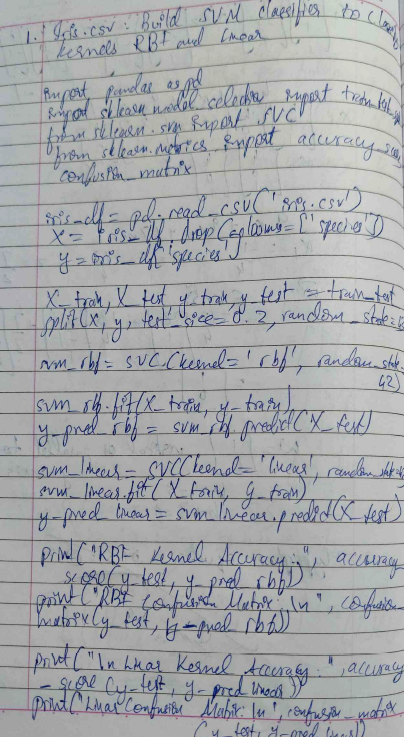 1. Iris.csv : Build SVM classifier to classi
kernels RBF and linear
import pandas as pd
import sklearn.model_selection import train_test_spl
from sklearn.svm import SVC
from sklearn.metrics import accuracy_score
confusion_matrix
iris_df = pd.read_csv('iris.csv')
X = iris_df.drop(columns=['species'])
y = iris_df['species']
X_train, X_test y_train, y_test = train_test
split(X, y, test_size = 0.2, random_state=
svm_rbf = SVC(kernel = 'rbf', random_state
42)
svm_rbf.fit(X_train, y_train)
y_pred_rbf = svm_rbf.predict(X_test)
svm_linear = SVC(kernel = 'linear', random_state=
svm_linear.fit(X_train, y_train)
y_pred_linear = svm_linear.predict(X_test)
print("RBF Kernel Accuracy:", accuracy
score(y_test, y_pred_rbf))
print("RBF Confusion Matrix:\n", confusion
matrix(y_test, y_pred_rbf))
print("\n Linear Kernel Accuracy:", accuracy
_score(y_test, y_pred_linear))
print("Linear Confusion Matrix:\n", confusion_matrix
(y_test, y_pred_linear))